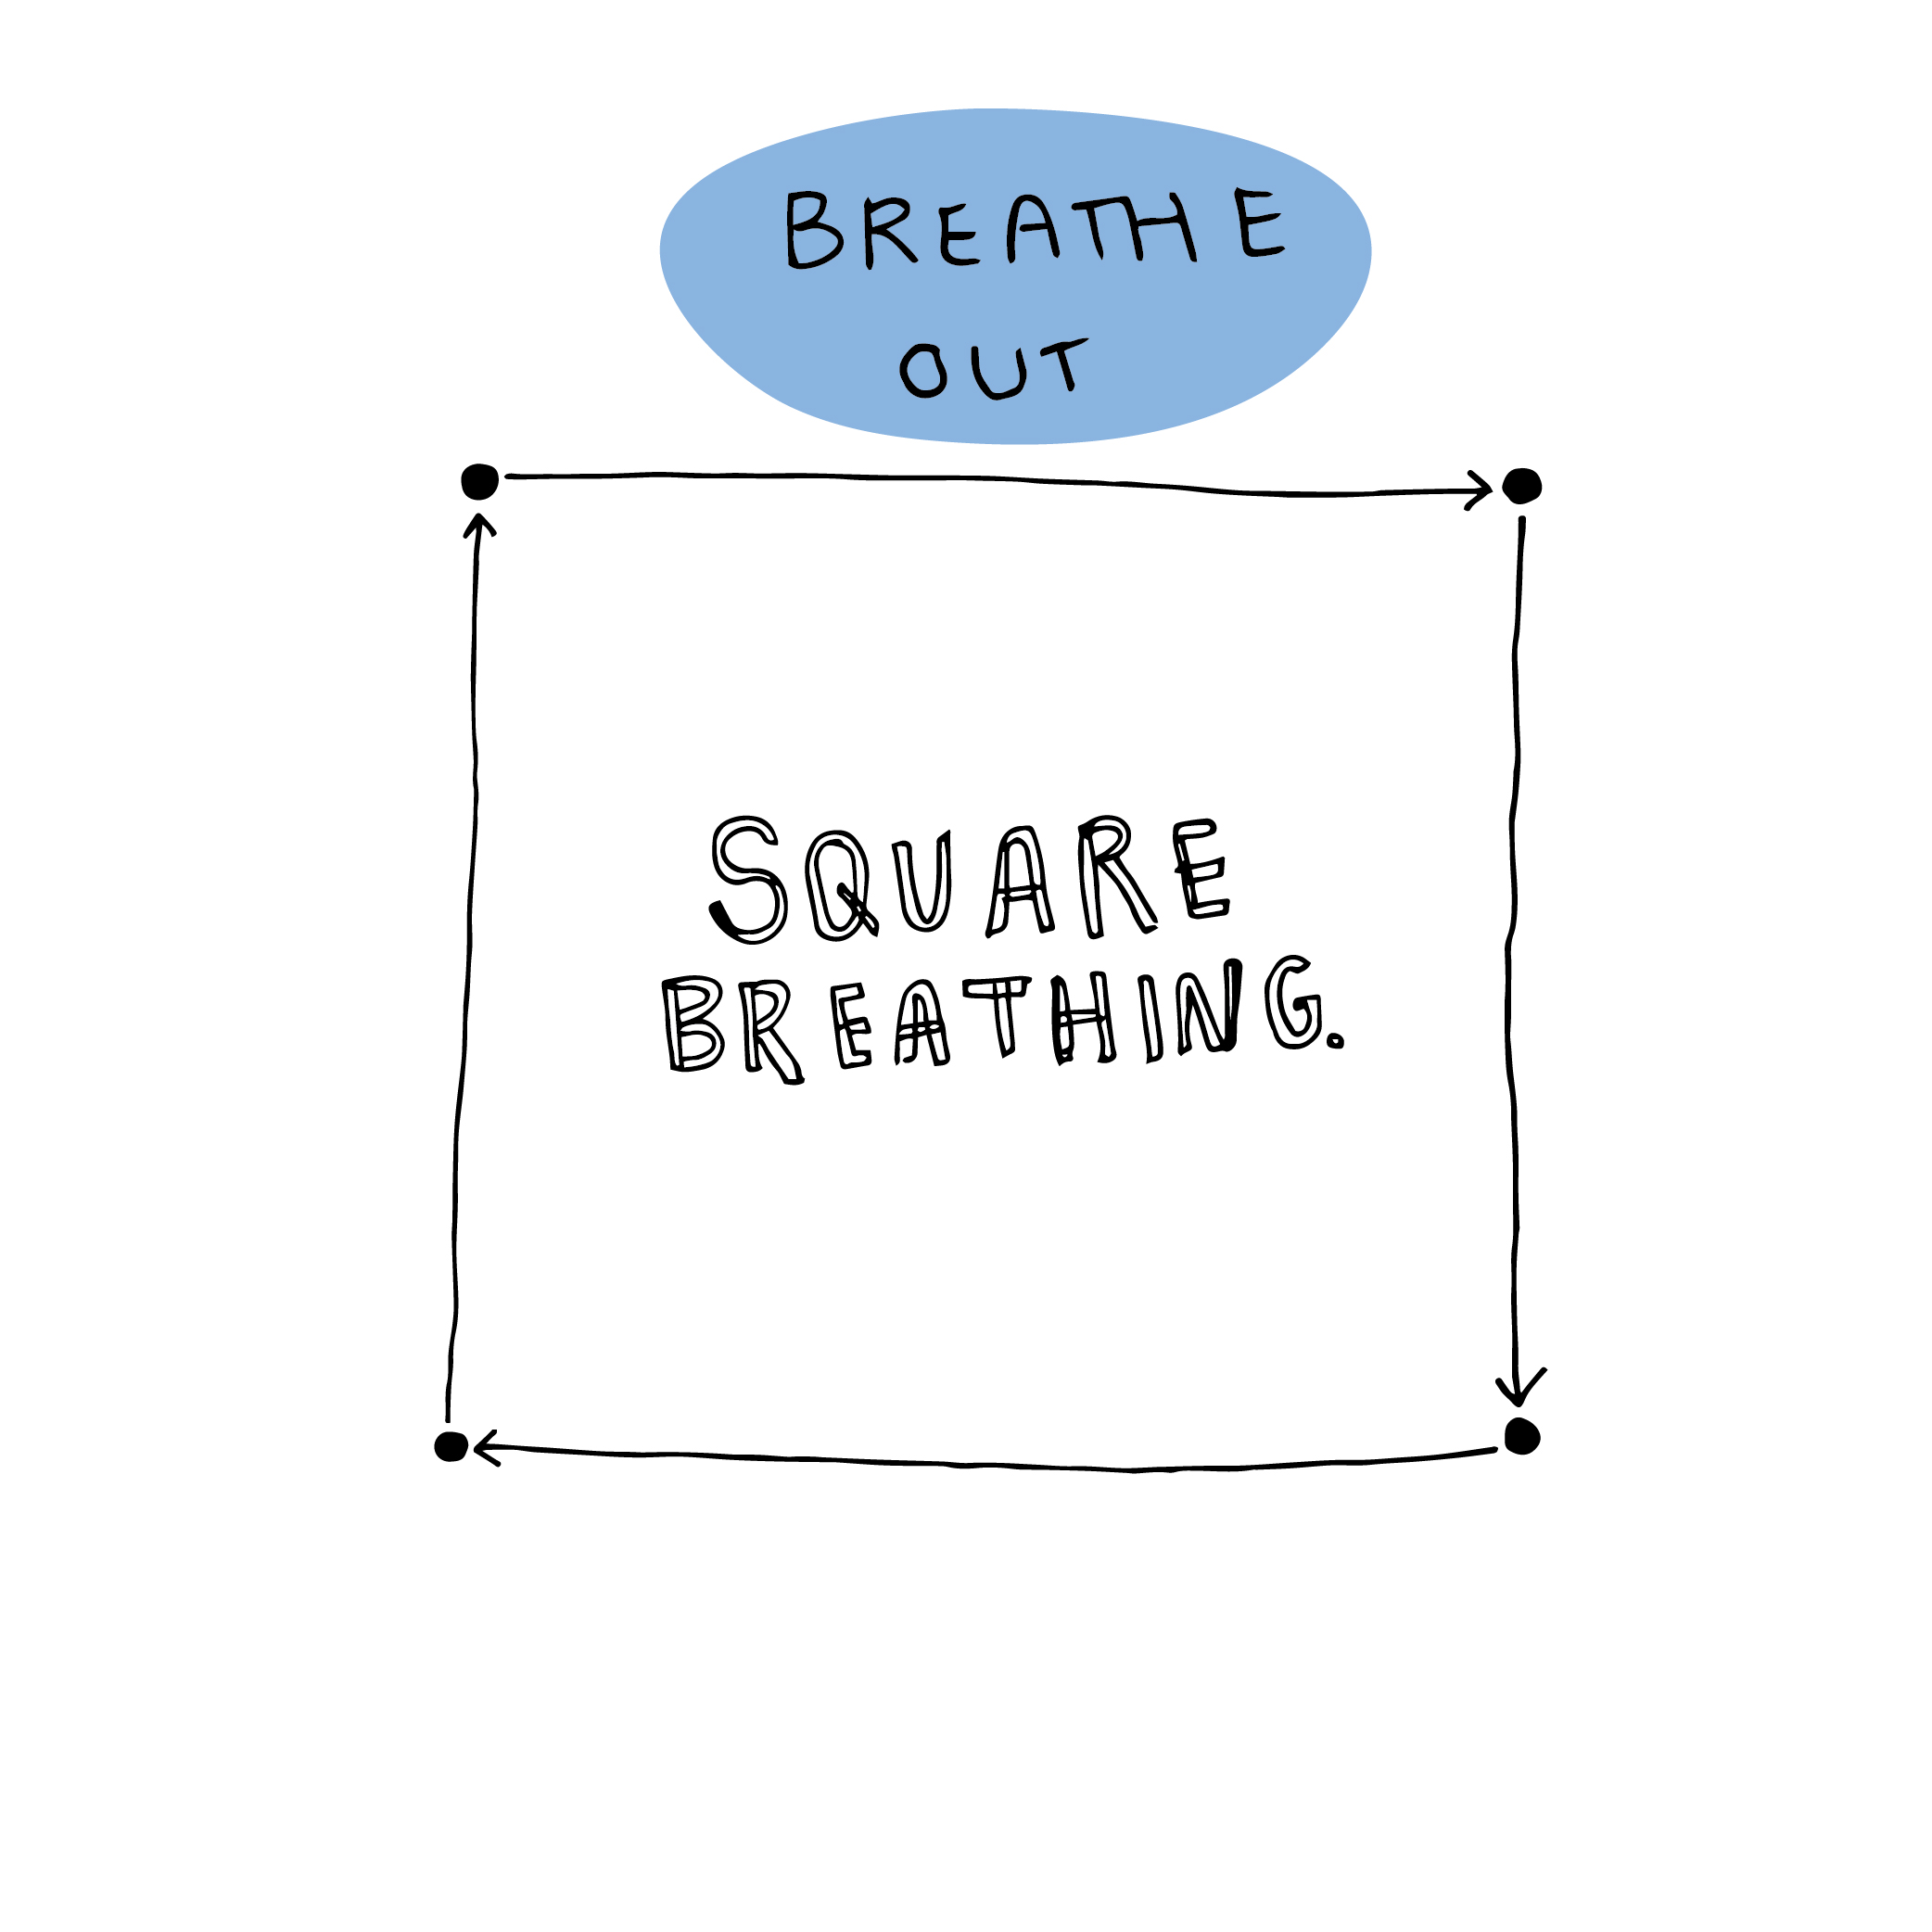 BREATHE
OUT
SQUARE
BREATHING.